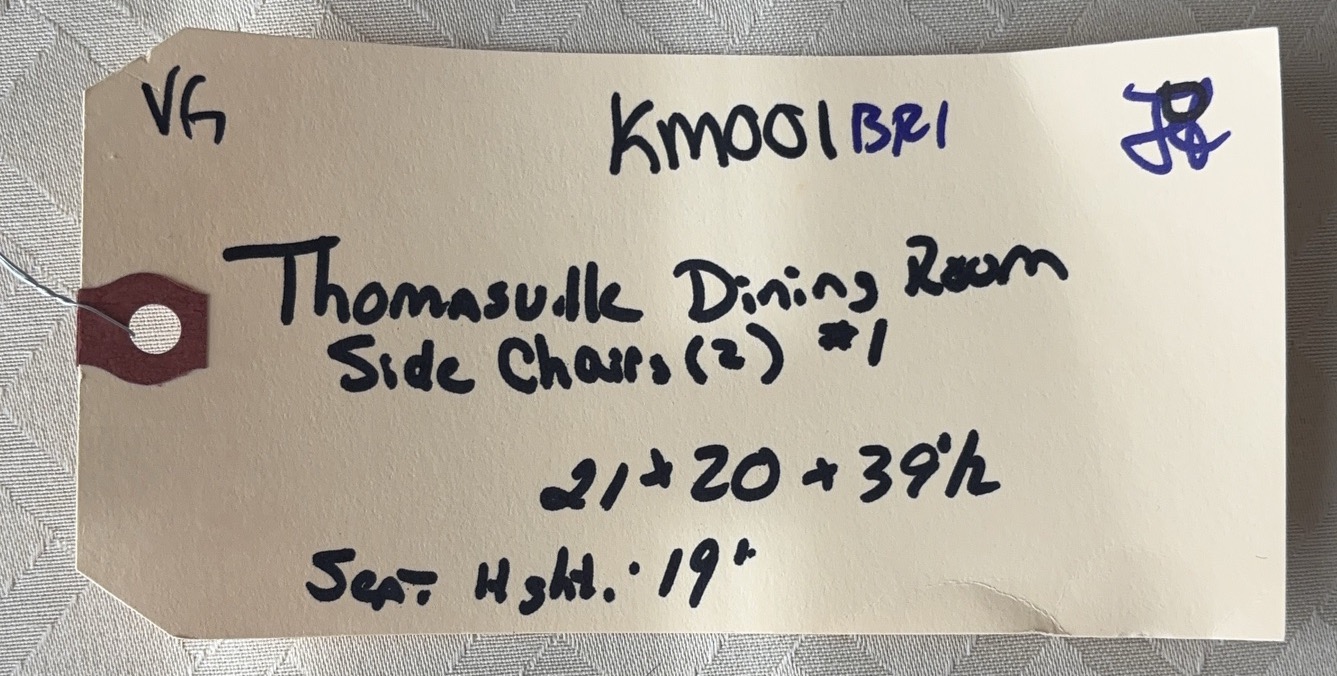 VG KM001BR1
Thomasville Dining Room
Side Chairs (2) #1
21 x 20 x 39"h
Seat Hght. 19"